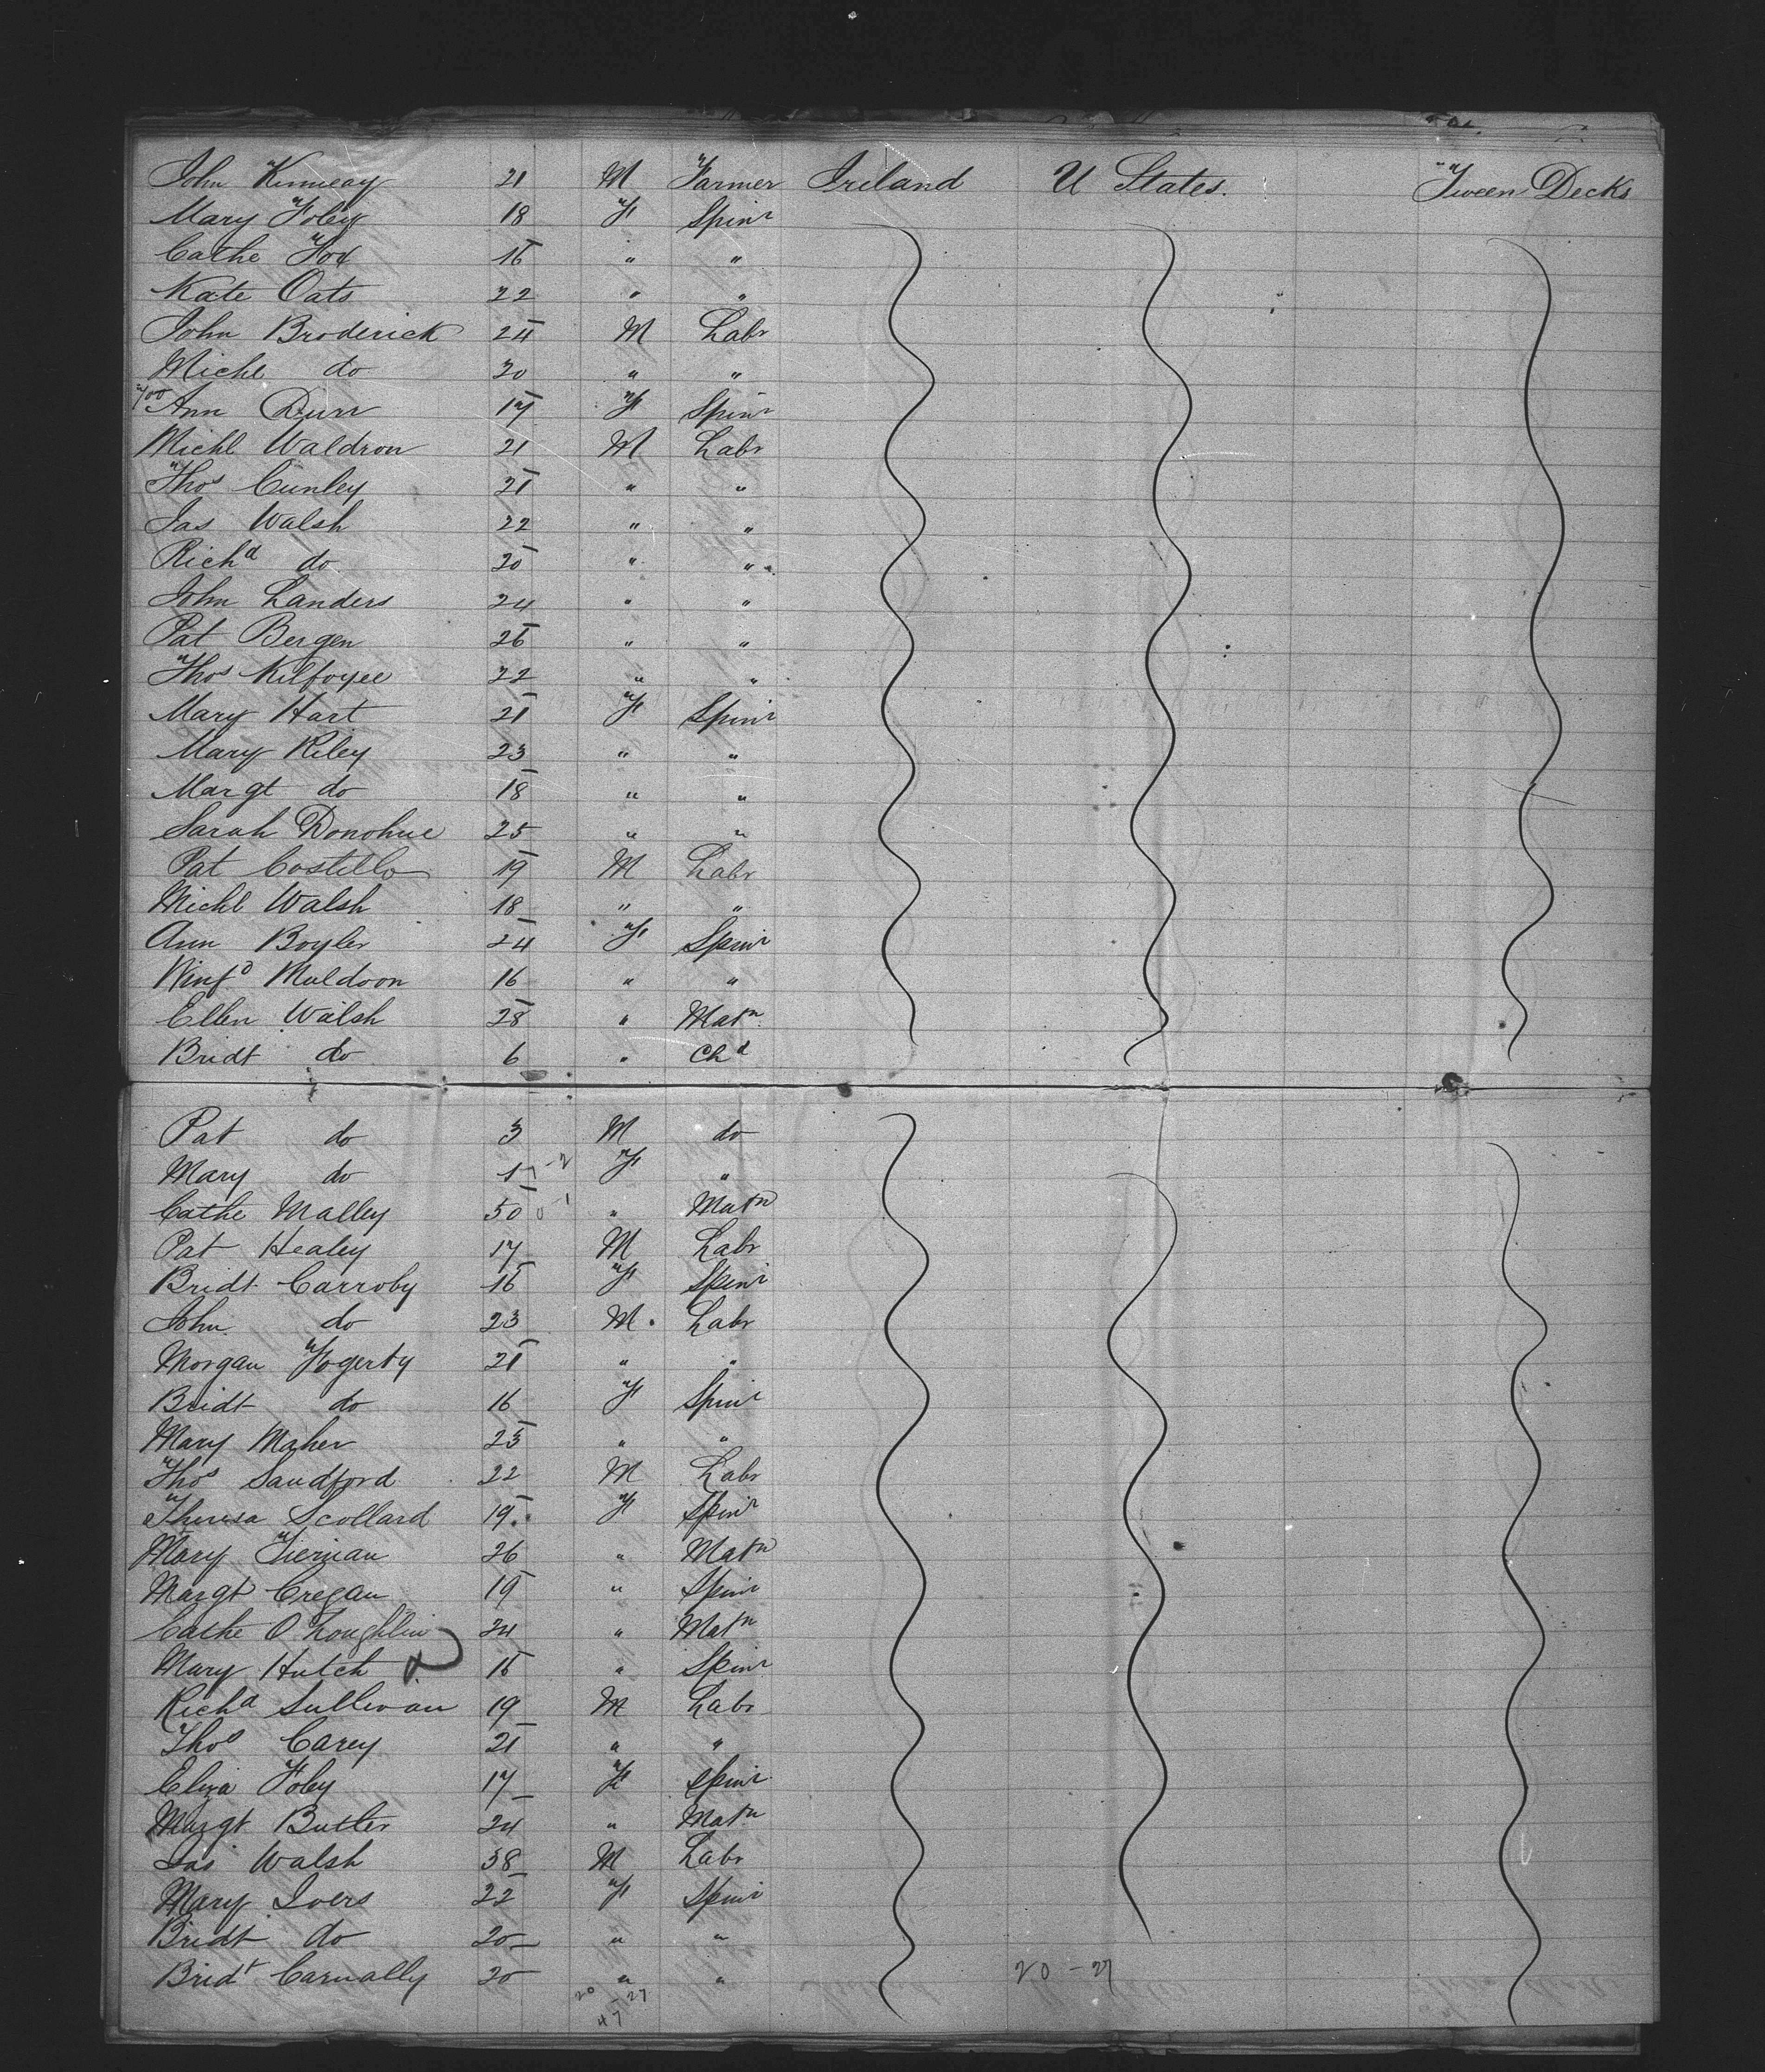 John Kinneay 21 M Farmer Ireland U States. 'Tween Decks
Mary Foley 18 F Spinr
Cathe Fox 16 " "
Kate Oats 22 " "
John Broderick 24 M Labr
Michl do 20 " "
Ann Durr 17 F Spinr
Michl Waldron 21 M Labr
Thos Cunley 21 " "
Jas Walsh 22 " "
Richd do 20 " "
John Landers 24 " "
Pat Bergen 26 " "
Thos Kilfoyle 22 " "
Mary Hart 21 F Spinr
Mary Riley 23 " "
Margt do 18 " "
Sarah Donohue 25 " "
Pat Costello 19 M Labr
Michl Walsh 18 " "
Ann Boyler 24 F Spinr
Winfd Muldoon 16 " "
Ellen Walsh 28 " Matn
Bridt do 6 " Chd
Pat do 3 M do
Mary do 1 F "
Cathe Malley 50 " Matn
Pat Healey 17 M Labr
Bridt Carroby 16 F Spinr
John do 23 M. Labr
Morgan Fogerty 21 " "
Bridt do 16 F Spinr
Mary Maher 23 " "
Thos Sandford 22 M Labr
Theresa Scollard 19 F Spinr
Mary Tiernan 26 " Matn
Margt Cregan 19 " Spinr
Cathe O'Loughlin 24 " Matn
Mary Hutch 16 " Spinr
Richd Sullivan 19 M Labr
Thos Carey 21 " "
Eliza Foley 17 F Spinr
Margt Butler 24 " Matn
Jas Walsh 38 M Labr
Mary Ivers 22 F Spinr
Bridt do 20 " "
Bridt Carnally 20 " "
20 - 27
20 - 27
47